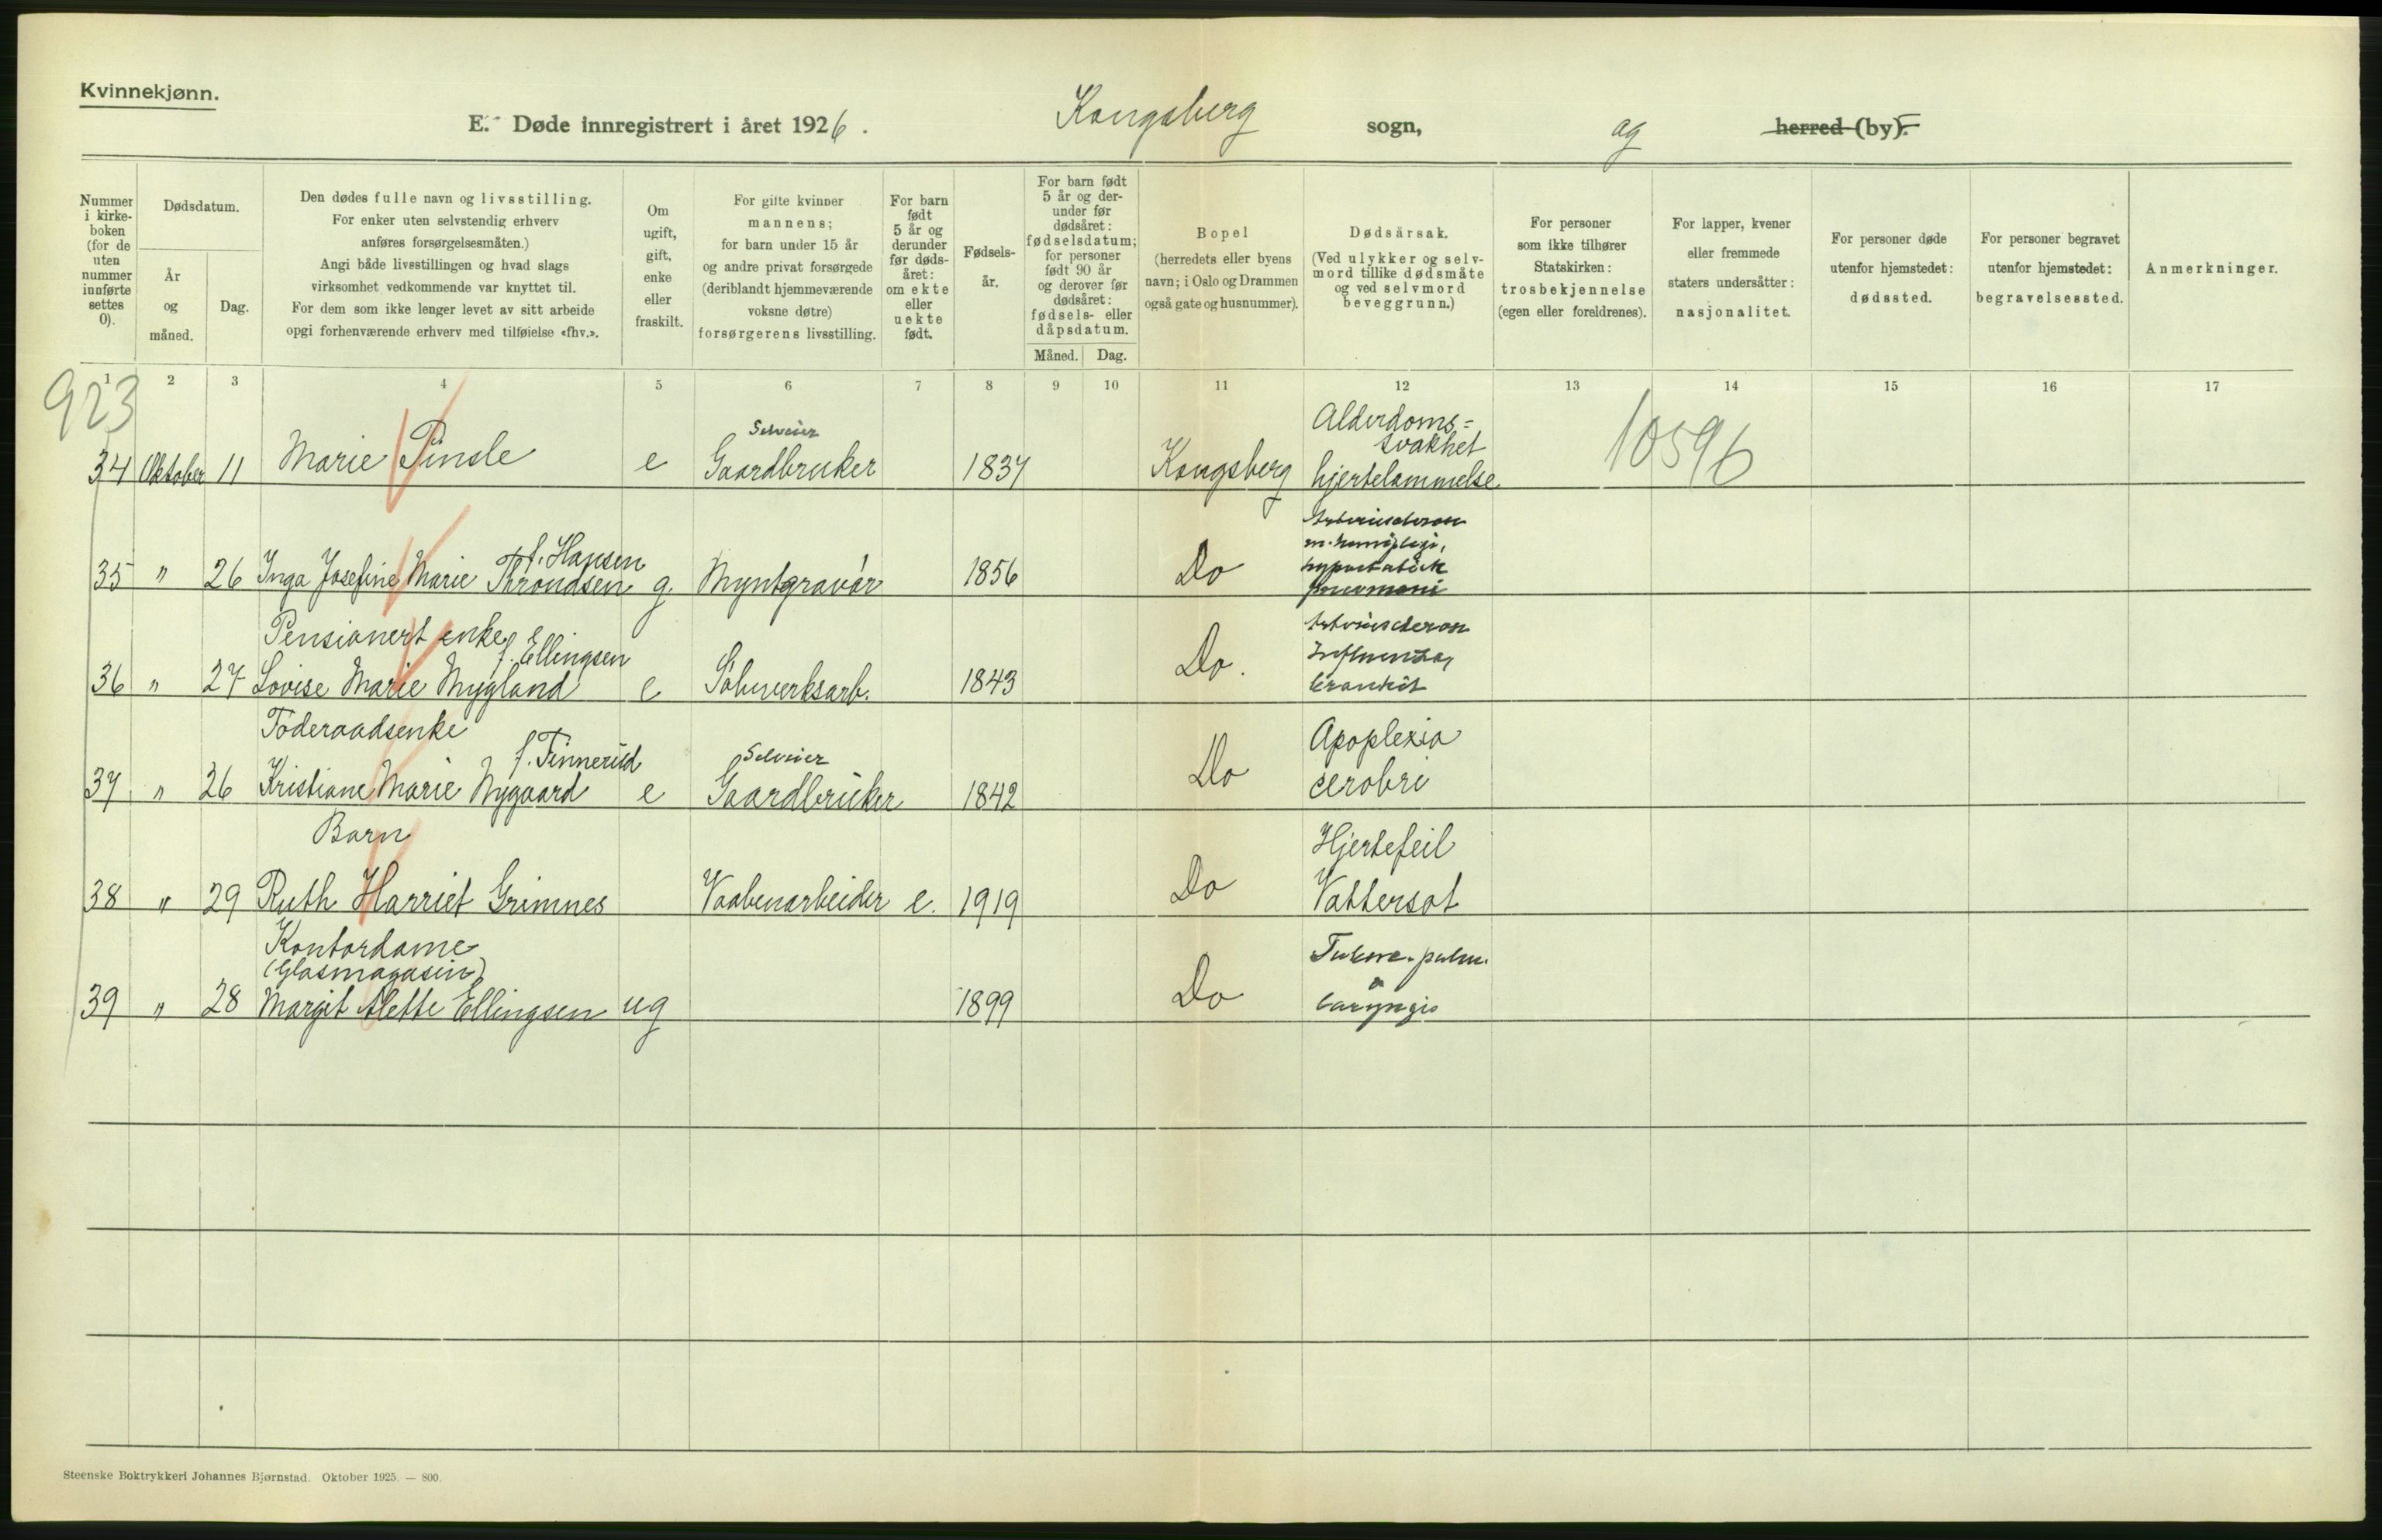 Kvinnekjønn.
E. Døde innregistrert i året 1926. Kongsberg sogn, og herred (by).
Nummer i kirkeboken (for de uten nummer innførte settes 0).
Dødsdatum.
År og måned.
Dag.
Den dødes fulle navn og livsstilling.
For enker uten selvstendig erhverv
anføres forsørgelsesmåten.)
Angi både livsstillingen og hvad slags
virksomhet vedkommende var knyttet til.
For dem som ikke lenger levet av sitt arbeide
opgi forhenværende erhverv med tilføielse «fhv.».
Om ugift, gift, enke eller fraskilt.
For gifte kvinner
mannens;
for barn under 15 år
og andre privat forsørgede
(deriblandt hjemmeværende
voksne døtre)
forsørgerens livsstilling.
For barn født 5 år og derunder før dødsåret: om ekte eller uekte født.
Fødselsår.
For barn født 5 år og derunder før dødsåret: fødselsdatum; for personer født 90 år og derover før dødsåret: fødsels- eller dåpsdatum.
Måned. Dag.
Bopel
(herredets eller byens
navn; i Oslo og Drammen
også gate og husnummer).
Dødsårsak.
(Ved ulykker og selv-
mord tillike dødsmåte
og ved selvmord
beveggrunn.)
For personer
som ikke tilhører
Statskirken:
trosbekjennelse
(egen eller foreldrenes).
For lapper, kvener
eller fremmede
staters undersåtter:
nasjonalitet.
For personer døde
utenfor hjemstedet:
dødssted.
For personer begravet
utenfor hjemstedet:
begravelsessted.
Anmerkninger.
1 2 3 4 5 6 7 8 9 10 11 12 13 14 15 16 17
923
Selveier Alderdoms=
svakhet 10596
34 Oktober 11 Marie Pinsle e Gaardbruker 1837 Kongsberg hjertelammelse
f. Hansen
35 " 26 Inga Josefine Marie Throndsen g. Myntgravør 1856 Do pneumoni
Pensionert enke
f. Ellingsen Influenza,
36 " 27 Lovise Marie Mygland e Sølvverksarb. 1843 Do.
Føderaadsenke Apoplexia
f. Tinnerud Selveier
37 " 26 Kristiane Marie Nygaard e Gaardbruker 1842 Do cerobri
Barn Hjertefeil
38 " 29 Ruth Harriet Grimnes Vaabenarbeider e. 1919 Do Vattersot
Kontordame
(Glasmagasin)
39 " 28 Margit Alette Ellingsen ug 1899 Do laryngis
Steenske Boktrykkeri Johannes Bjørnstad. Oktober 1925. — 800.